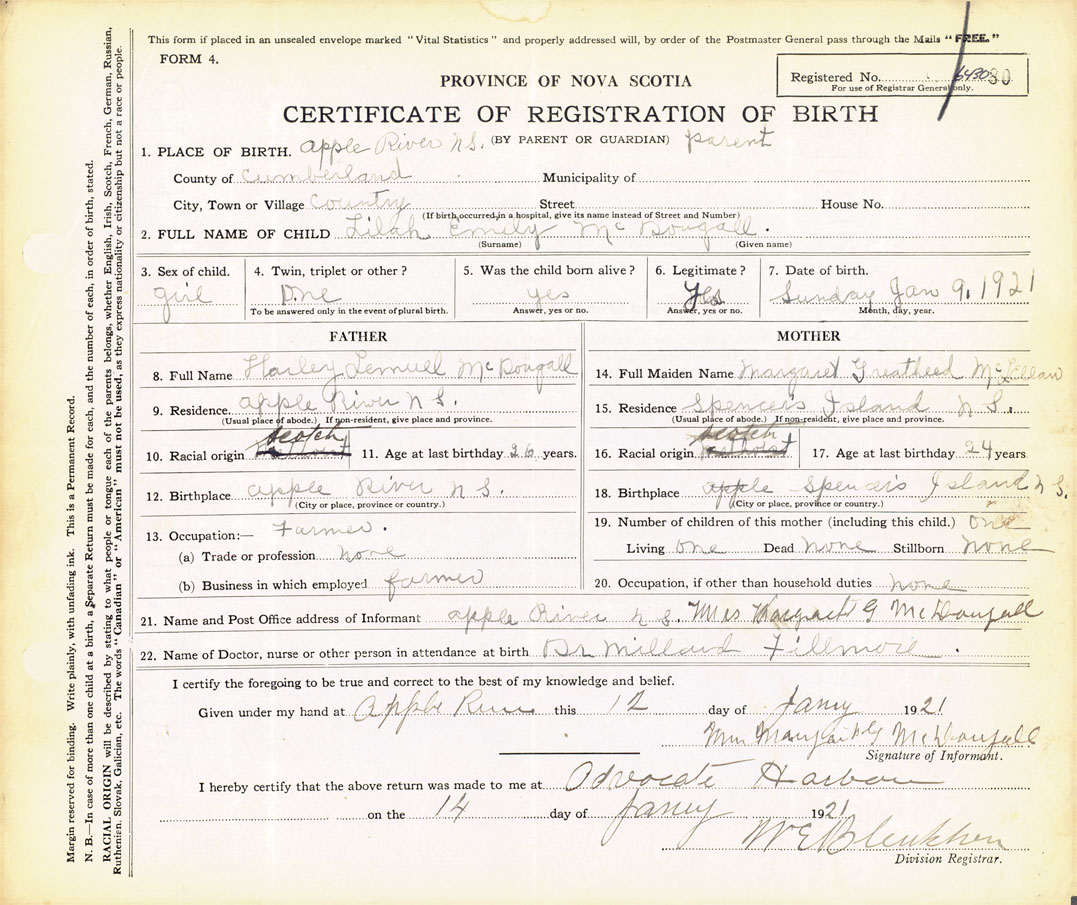 This form if placed in an unsealed envelope marked "Vital Statistics" and properly addressed will, by order of the Postmaster General pass through the Mails "FREE."
FORM 4.
PROVINCE OF NOVA SCOTIA
Registered No.
For use of Registrar General only.
CERTIFICATE OF REGISTRATION OF BIRTH
(BY PARENT OR GUARDIAN) parent
1. PLACE OF BIRTH. Apple River N S.
County of Cumberland Municipality of
City, Town or Village Country Street House No.
(If birth occurred in a hospital, give its name instead of Street and Number)
2. FULL NAME OF CHILD Lilah Emily McDougall.
(Surname) (Given name)
3. Sex of child. 4. Twin, triplet or other? 5. Was the child born alive? 6. Legitimate? 7. Date of birth.
girl One yes Yes Sunday Jan 9, 1921
To be answered only in the event of plural birth. Answer, yes or no. Answer, yes or no. Month, day, year.
FATHER MOTHER
8. Full Name Harley Lemuel McDougall 14. Full Maiden Name Margaret Greatheed McLellan
9. Residence apple River N S. 15. Residence Spencer's Island N S.
(Usual place of abode.) If non-resident, give place and province. (Usual place of abode.) If non-resident, give place and province.
10. Racial origin Scotch 11. Age at last birthday 26 years. 16. Racial origin Scotch 17. Age at last birthday 24 years
12. Birthplace apple River N S. 18. Birthplace apple Spencer's Island N S.
(City or place, province or country.) (City or place, province or country.)
13. Occupation:— Farmer. 19. Number of children of this mother (including this child.) one
(a) Trade or profession none Living one Dead none Stillborn none
(b) Business in which employed farmer 20. Occupation, if other than household duties none
21. Name and Post Office address of Informant apple River N S. Mrs Margaret G McDougall
22. Name of Doctor, nurse or other person in attendance at birth Dr Millard Fillmore.
I certify the foregoing to be true and correct to the best of my knowledge and belief.
Given under my hand at Apple River this 12 day of Jany 1921
Mrs Margaret G McDougall
Signature of Informant.
I hereby certify that the above return was made to me at Advocate Harbour
on the 14 day of Jany 1921
W E Blenkhorn
Division Registrar.
Margin reserved for binding. Write plainly, with unfading ink. This is a Permanent Record.
N. B.—In case of more than one child at a birth, a Separate Return must be made for each, and the number of each, in order of birth, stated.
RACIAL ORIGIN will be described by stating to what people or tongue each of the parents belongs, whether English, Irish, Scotch, French, German, Russian,
Ruthenien, Slovak, Galician, etc. The words "Canadian" or "American" must not be used, as they express nationality or citizenship but not a race or people.